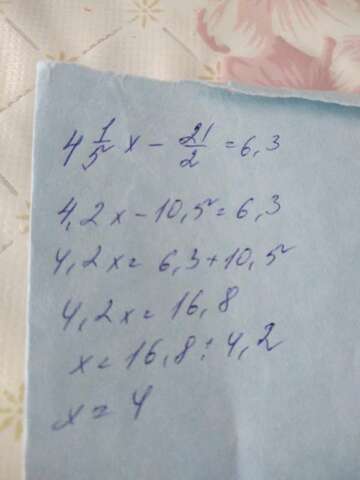 4 1/5 x - 21/2 = 6,3
4,2x - 10,5 = 6,3
4,2x = 6,3 + 10,5
4,2x = 16,8
x = 16,8 : 4,2
x = 4